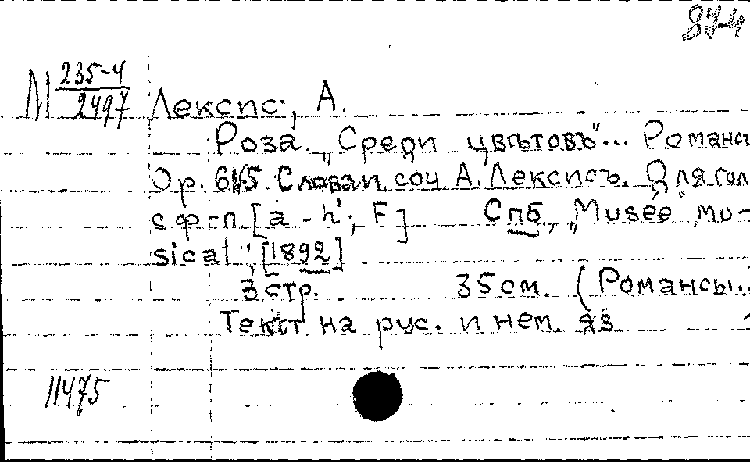 874
М 235-4
2497
Лексис, А.
Роза. „Среди цвѣтовъ“... Романс
Ор. 615. Слова и соч А. Лексисъ. Для гол
с ф-п [a - h'; F] Спб, „Musée mu-
sical“, [1892]
3 стр. 35 см. (Романсы...
Текст на рус. и нем. яз
11475